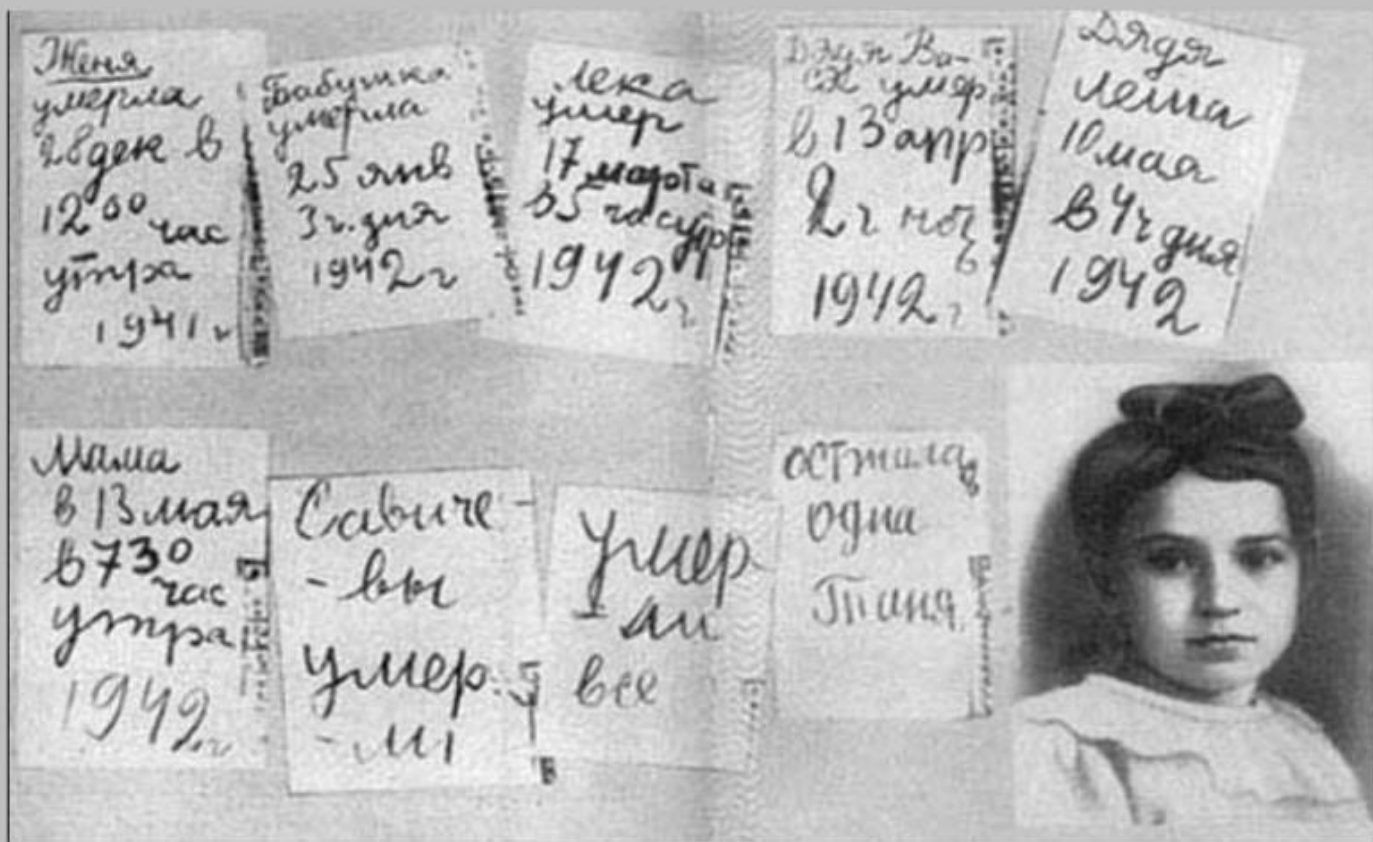 Женя
умерла
28 дек в
12 00 час
утра
1941 г
Бабушка
умерла
25 янв
3 ч. дня
1942 г
Лека
умер
17 марта
в 5 час утр
1942 г
Дядя Ва-
ся умер
в 13 апр
2 ч ночь
1942 г
Дядя
Леша
10 мая
в 4 ч дня
1942
Мама
в 13 мая
в 7 30
час
утра
1942 г
Савиче-
- вы
умер
- ли
Умер
- ли
все
осталась
одна
Таня